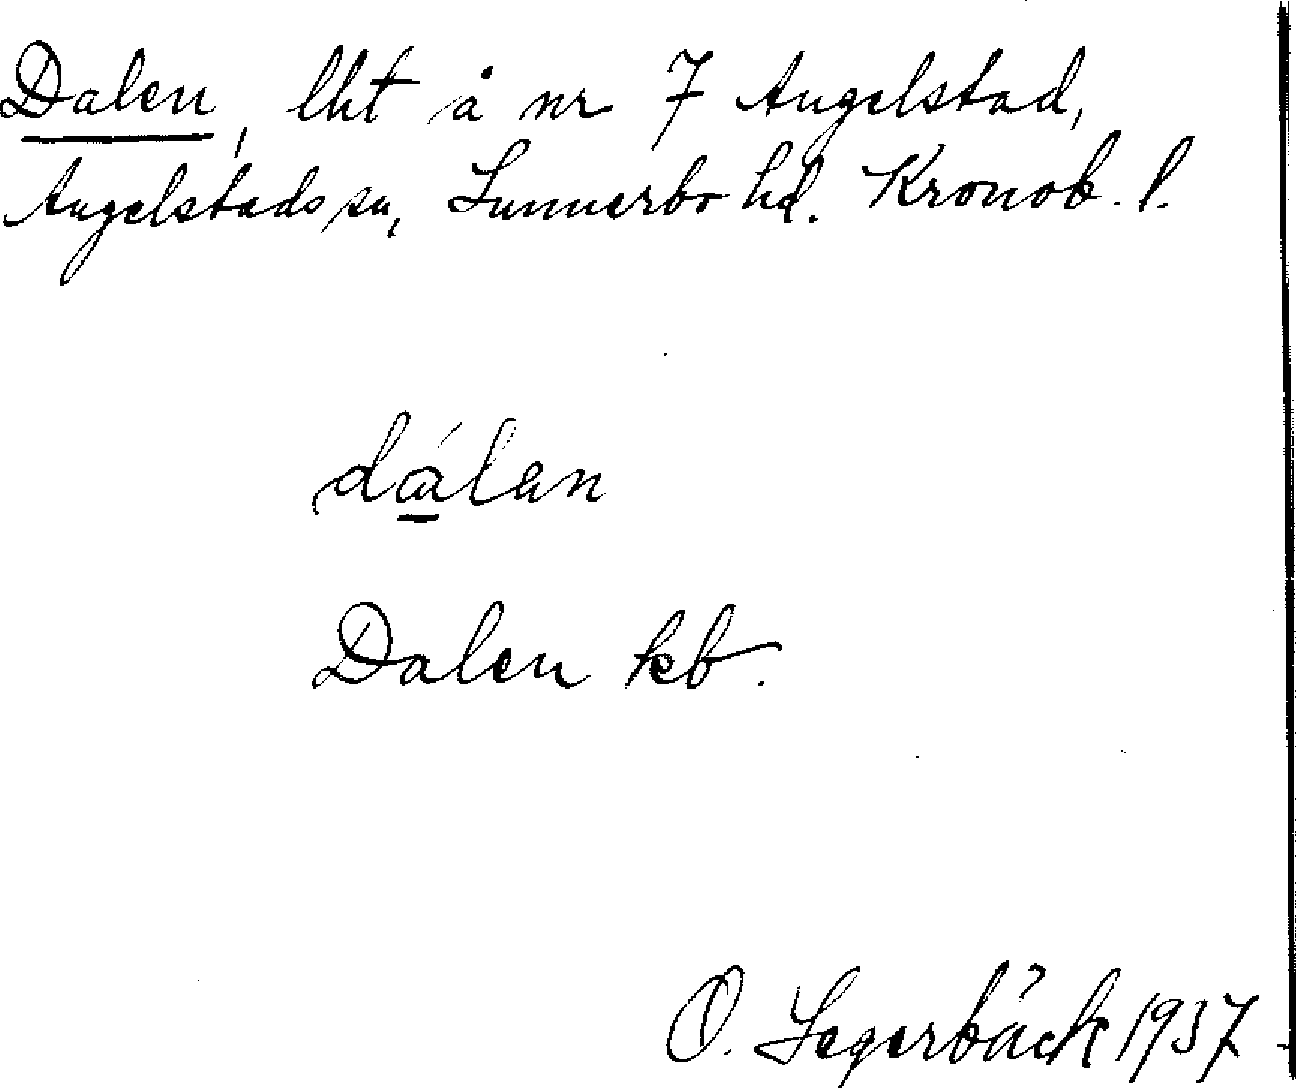 Dalen, lht å nr 7 Angelstad,
Angelstads sn, Sunnerbo hd. Kronob. l.
dálan
Dalen kb.
O. Segerbäck 1937